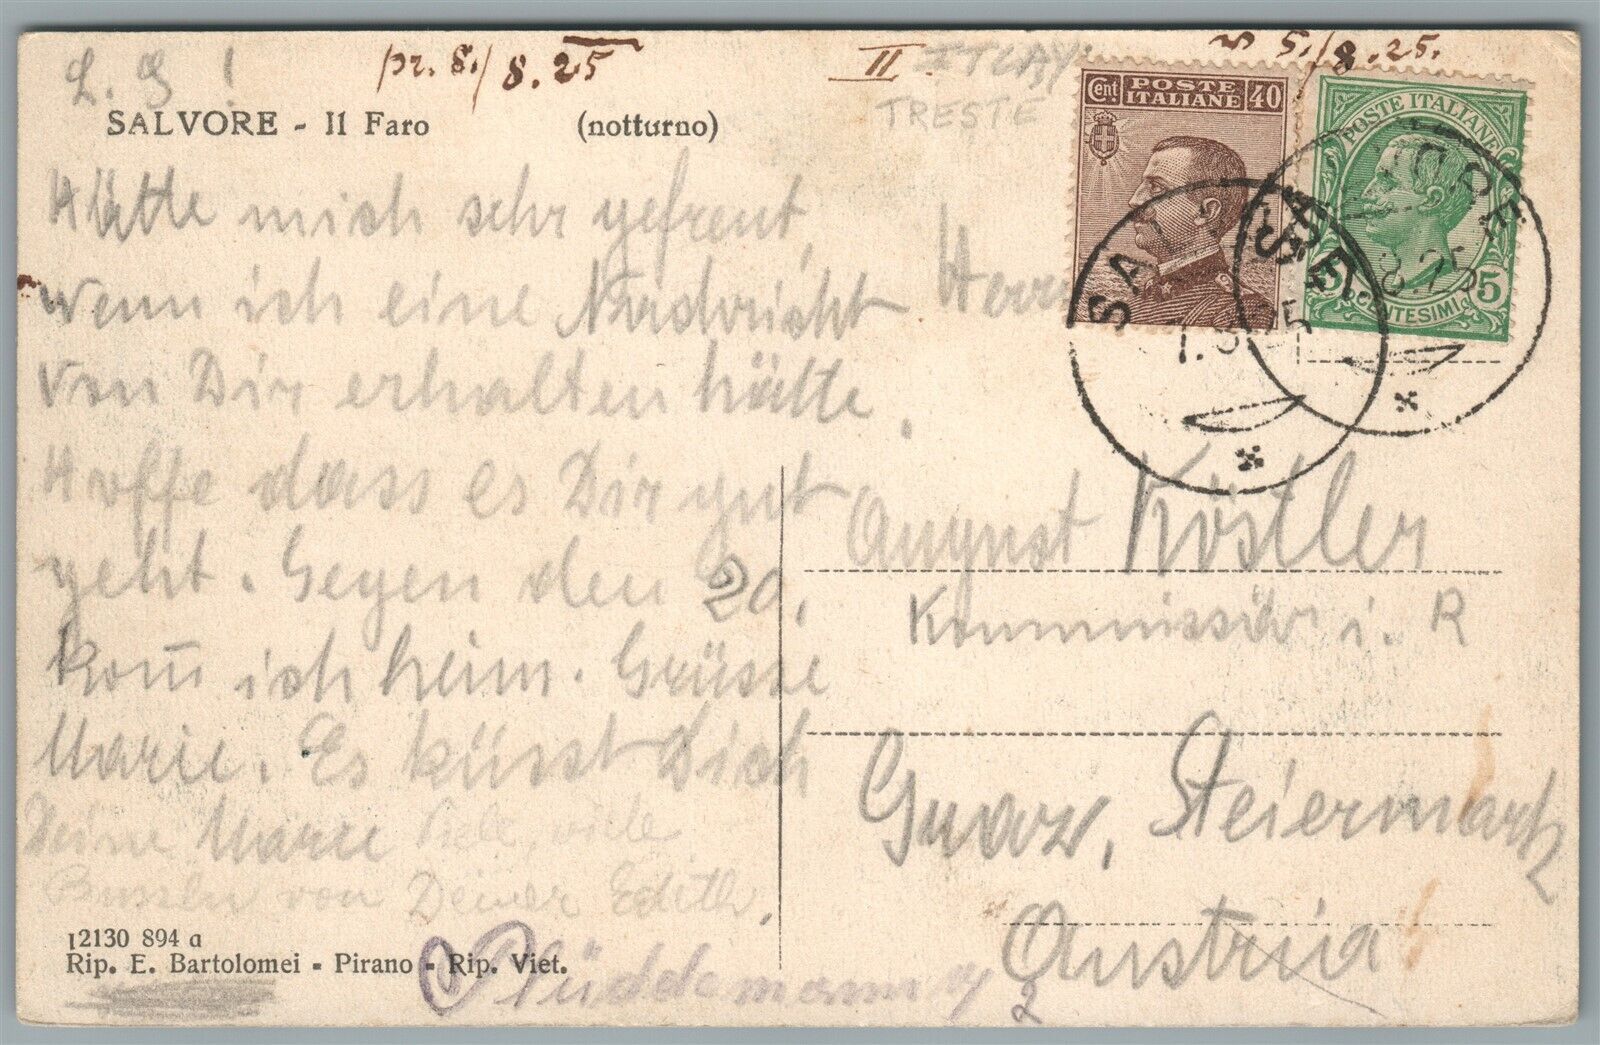 L. G!
pr. 8./8.25
II
ITLAY
TRESTE
5./8.25.
SALVORE - Il Faro (notturno)
Hätte mich sehr gefreut,
wenn ich eine Nachricht
von Dir erhalten hätte.
Hoffe dass es Dir gut
geht. Gegen den 20.
kom̄ ich heim. Grüsse
Marie. Es küsst Dich
Deine Marie Viele, viele
Busserln von Deiner Edith.
12130 894 a
Rip. E. Bartolomei - Pirano - Rip. Viet.
Cent POSTE ITALIANE 40
POSTE ITALIANE
5 CENTESIMI 5
SALVORE
8.25
SALVORE
8.25
Herrn
August Köstler
Kommissär i. R
Graz, Steiermark
Austria!
Plüddemanng
2